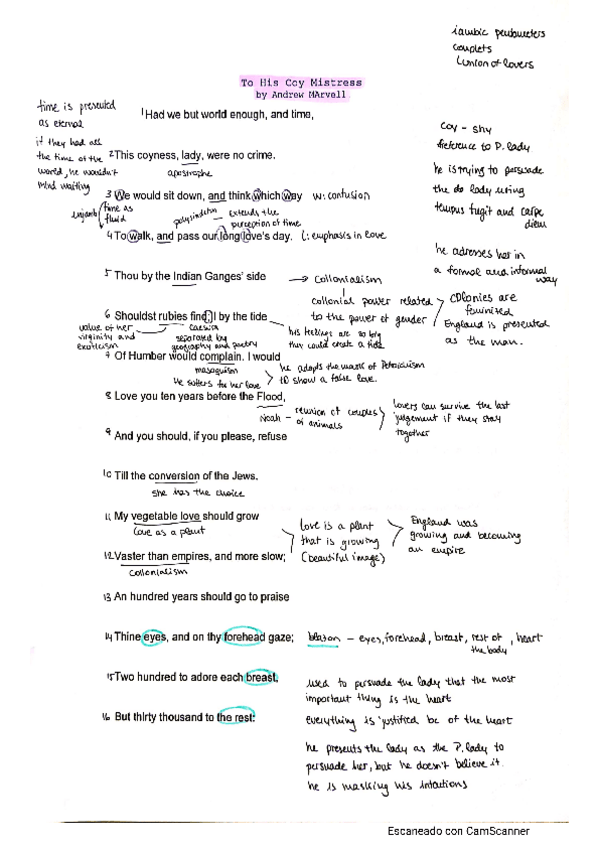 iambic pentameters
couplets
Union of lovers
To His Coy Mistress
by Andrew MArvell
time is presented
as eternal
if they had all
the time of the
world, he wouldn't
mind waiting
1 Had we but world enough, and time,
coy - shy
Reference to P. lady
he is trying to persuade
the do lady using
tempus fugit and carpe
diem
he adresses her in
a formal and informal
way
2 This coyness, lady, were no crime.
apostrophe
3 We would sit down, and think which way
w: confusion
enjamb
time as
fluid
polysindeton → extends the
perception of time
4 To walk, and pass our long love's day.
l: emphasis in love
5 Thou by the Indian Ganges' side
→ Collonialism
collonial power related
to the power of gender
COlonies are
feminised
England is presented
as the man.
6 Shouldst rubies find; I by the tide
value of her
virginity and
exoticism
caesura
separated by
geography and poetry
his feelings are so big
they could create a tide
7 Of Humber would complain. I would
masoquism
He suffers for her love
he adopts the mask of Petrarquism
to show a false love.
8 Love you ten years before the Flood,
Noah - reunion of couples
of animals
lovers can survive the last
judgement if they stay
together
9 And you should, if you please, refuse
10 Till the conversion of the Jews.
she has the choice
11 My vegetable love should grow
love as a plant
love is a plant
that is growing
(beautiful image)
England was
growing and becoming
an empire
12 Vaster than empires, and more slow;
collonialism
13 An hundred years should go to praise
14 Thine eyes, and on thy forehead gaze;
blason - eyes, forehead, breast, rest of the body, heart
15 Two hundred to adore each breast,
used to persuade the lady that the most
important thing is the heart
16 But thirty thousand to the rest:
everything is justified bc of the heart
he presents the lady as the P. lady to
persuade her, but he doesn't believe it.
he is masking his intentions
Escaneado con CamScanner